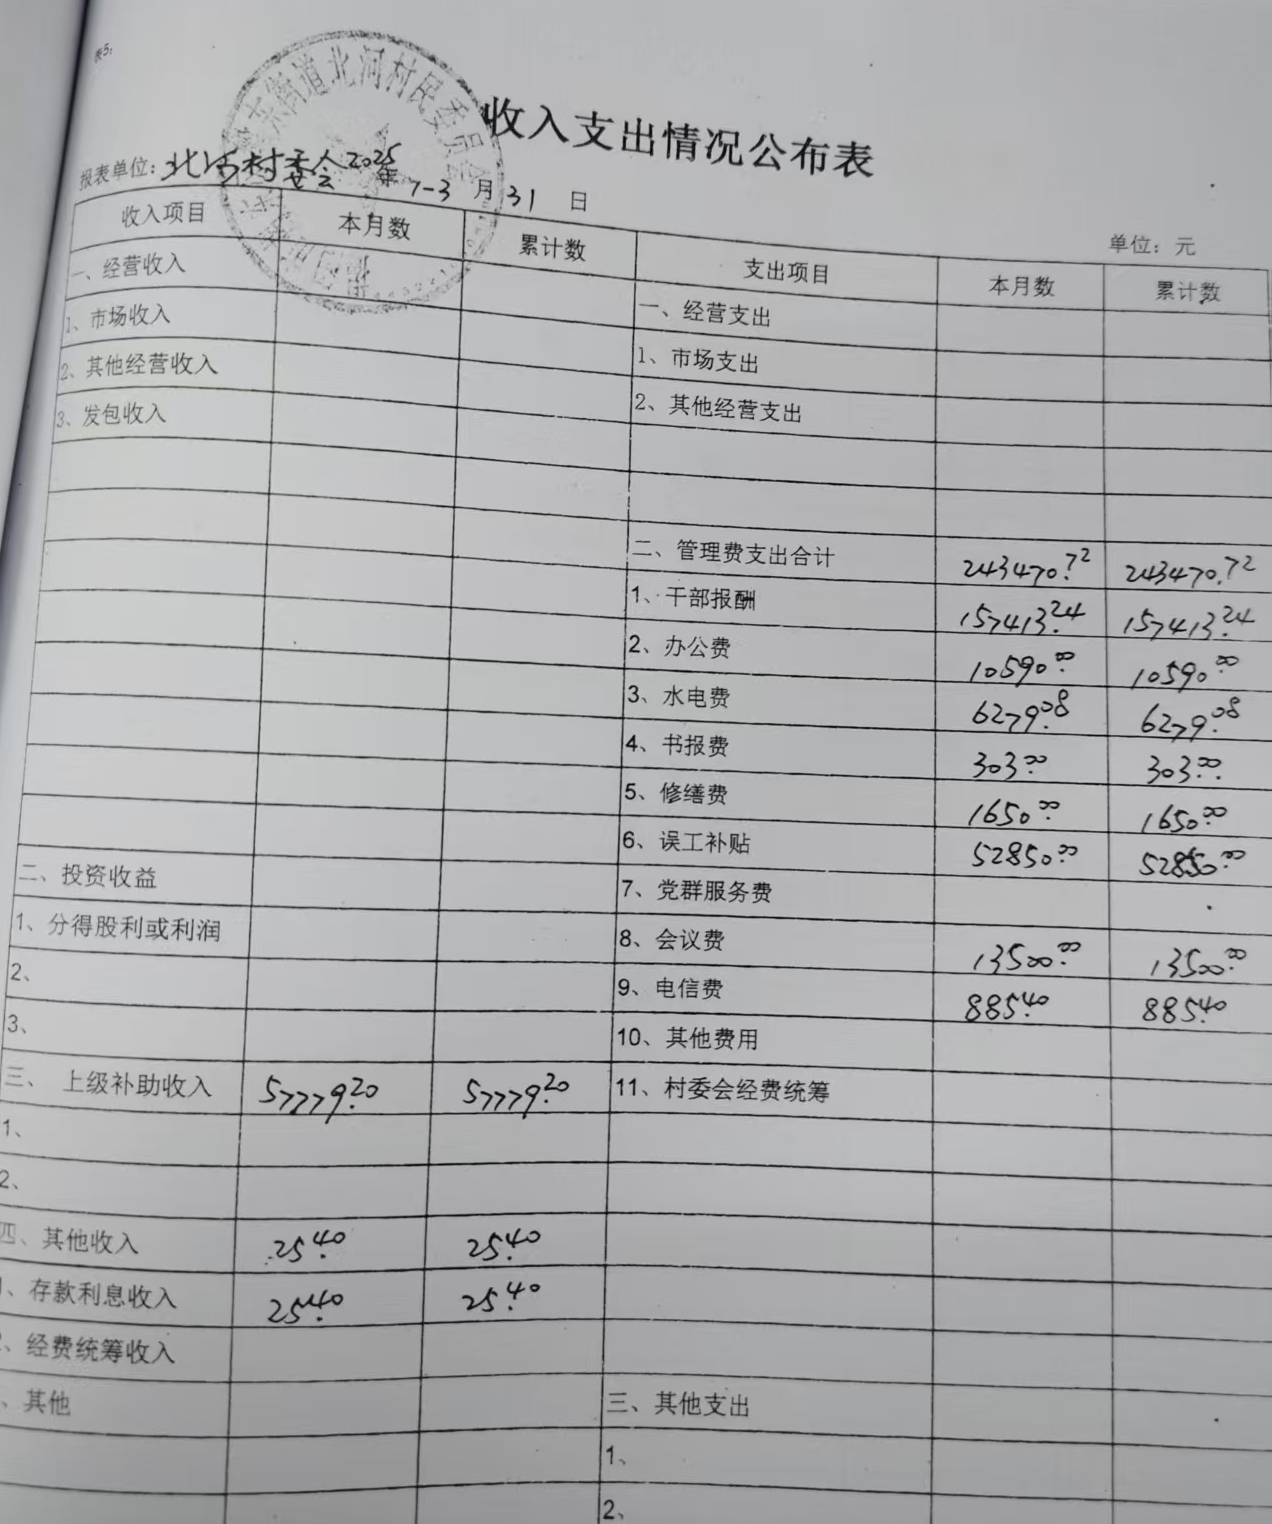 表5:
收入支出情况公布表
街道北河村民委员会
报表单位: 北河村委会 2025年 1-3月31日
单位: 元
收入项目 本月数 累计数 支出项目 本月数 累计数
一、经营收入 一、经营支出
1、市场收入 1、市场支出
2、其他经营收入 2、其他经营支出
3、发包收入
二、管理费支出合计 243470.72 243470.72
1、干部报酬 157413.24 157413.24
2、办公费 10590.00 10590.00
3、水电费 6279.08 6279.08
4、书报费 303.00 303.00
5、修缮费 1650.00 1650.00
6、误工补贴 52850.00 52850.00
二、投资收益 7、党群服务费
1、分得股利或利润 8、会议费 13500.00 13500.00
2、 9、电信费 885.40 885.40
3、 10、其他费用
三、上级补助收入 57779.20 57779.20 11、村委会经费统筹
1、
2、
四、其他收入 25.40 25.40
1、存款利息收入 25.40 25.40
2、经费统筹收入
、其他 三、其他支出
1、
2、